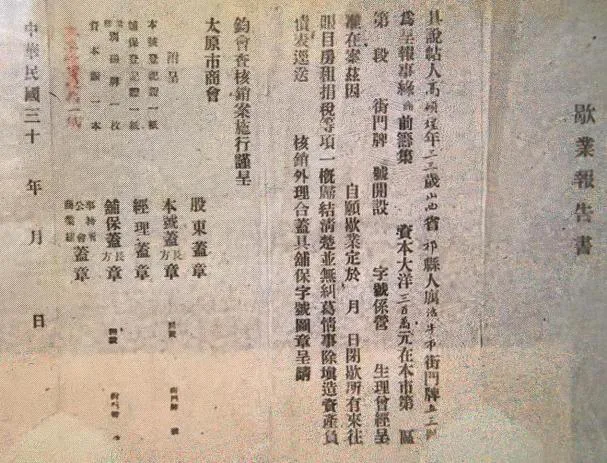 歇業報告書
具說帖人高 年三三歲山西省祁縣人 街門牌
爲呈報事緣 前籌集 資本大洋三百萬元在本市第 區
第 段 街門牌 號開設 字號係營 生理曾經呈
准在案茲因 自願歇業定於 月 日閉歇所有來往
賬目房租捐稅等項一概歸結清楚並無糾葛情事除填造資產負
債表逕送 核銷外理合蓋具舖保字號圖章呈請
鈞會查核銷案施行謹呈
太原市商會
附呈
本號登記證一紙
舖保登記證一紙
牌一枚
資本 一本
股東蓋章
本號蓋長方章
經理蓋章
舖保蓋長方章
公會 蓋章
中華民國三十 年 月 日